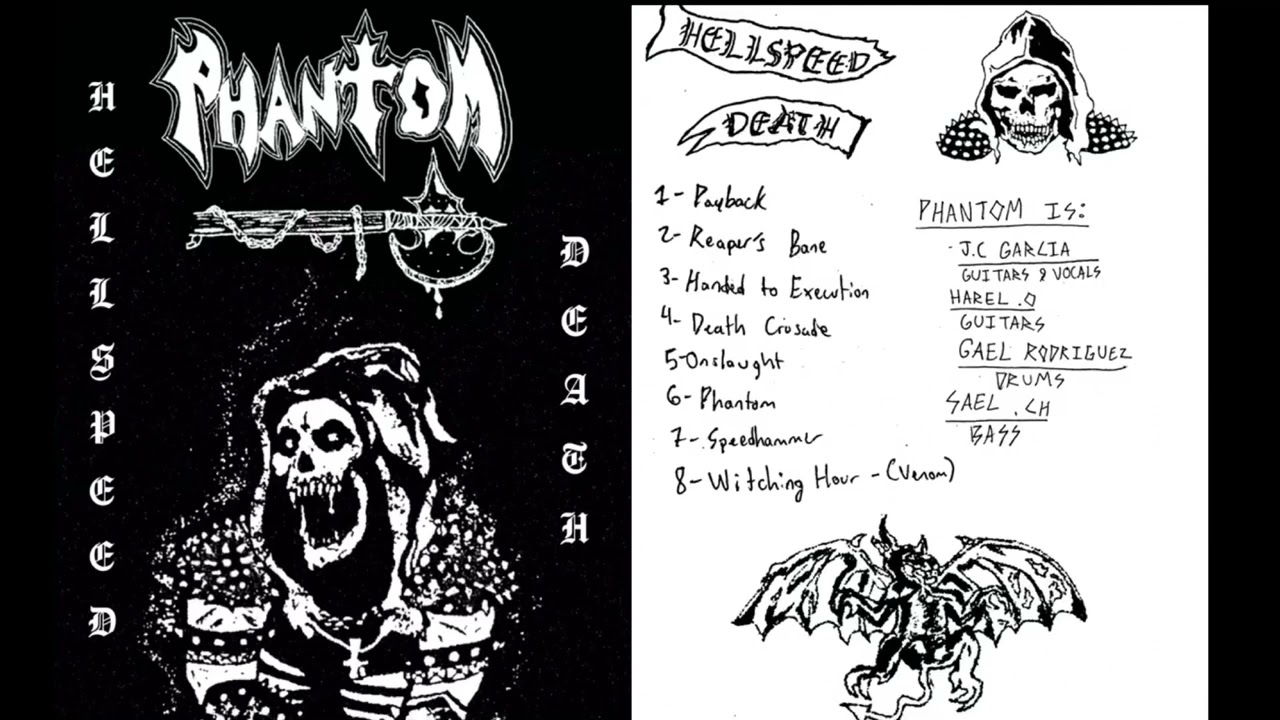 PHANTOM
HELLSPEED
DEATH
HELLSPEED
DEATH
1- Payback
2- Reaper's Bane
3- Handed to Execution
4- Death Crusade
5- Onslaught
6- Phantom
7- Speedhammer
8- Witching Hour - (Venom)
PHANTOM IS:
- J.C GARCIA
GUITARS & VOCALS
HAREL .O
GUITARS
GAEL RODRIGUEZ
DRUMS
SAEL .CH
BASS